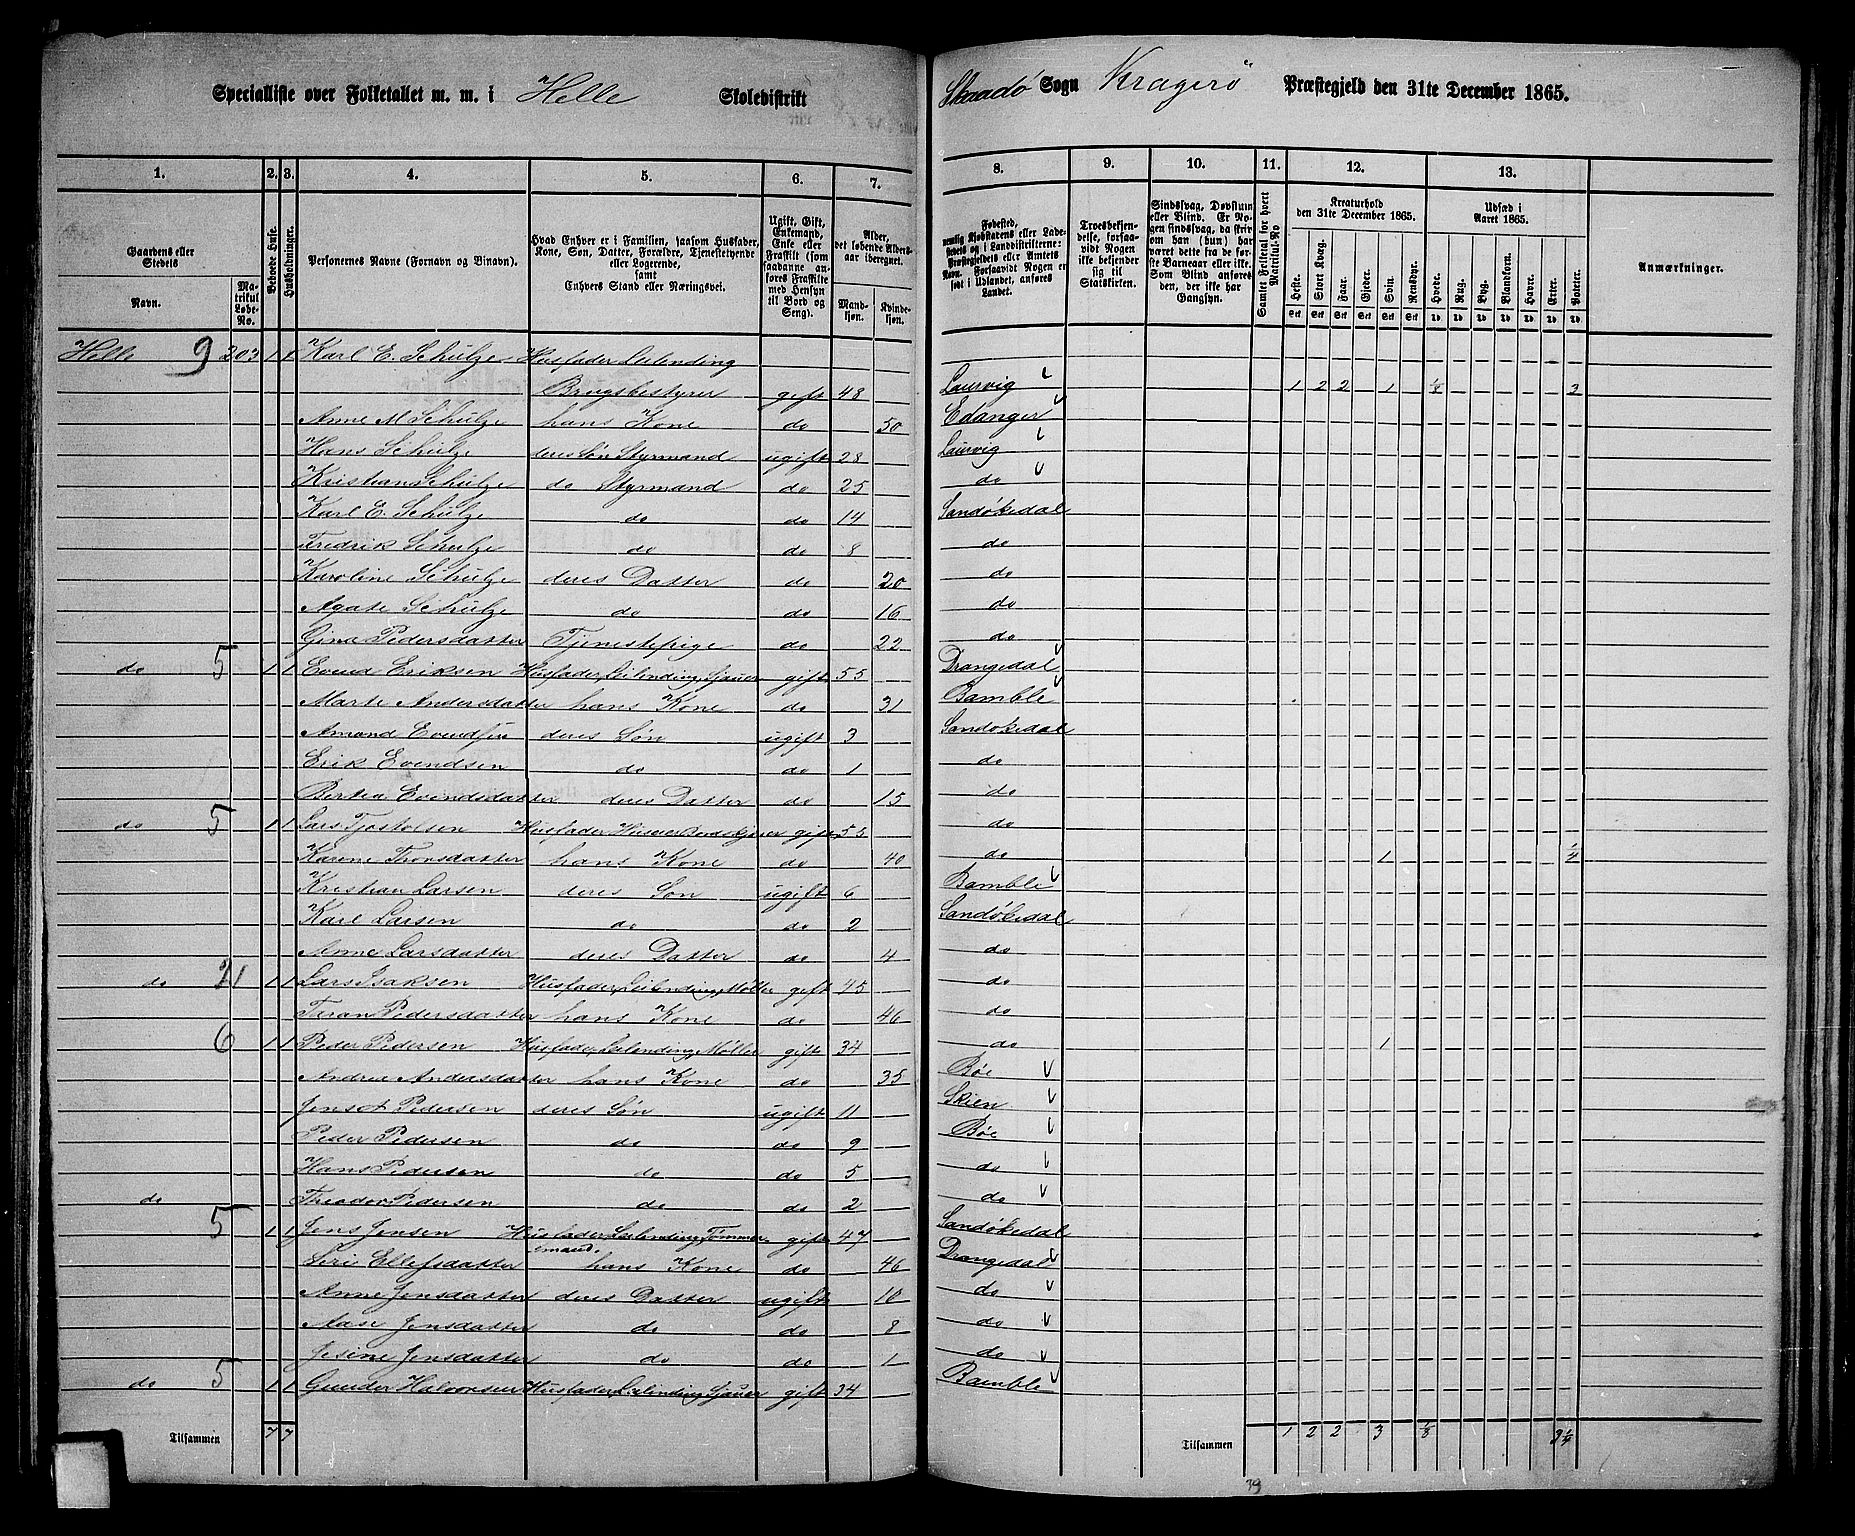 Specialliste over Folketallet m. m. i Helle Skoledistrikt Skaadø Sogn Kragerø Præstegjeld den 31te December 1865.
1. 2. 3. 4. 5. 6. 7. 8. 9. 10. 11. 12. 13.
Gaardens eller Stedets
Navn.
Matrikul Løbe-No.
Beboede Huse.
Husholdninger.
Personernes Navne (Fornavn og Tilnavn).
Hvad Enhver er i Familien, saasom Husfader, Kone, Søn, Datter, Forældre, Tjenestetyende eller Logerende, samt Enhvers Stand eller Næringsvei.
Ugift, Gift, Enkemand, Enke eller Fraskilt (som saadanne anføres Fraskilte med Hensyn til Bord og Seng).
Alder, det løbende Alders-aar iberegnet.
Mandkjøn.
Kvindekjøn.
Fødested,
Troesbekjendelse, forsaavidt Nogen ikke bekjender sig til Statskirken.
Sindssvag, Døvstum eller Blind.
Samlet Folketal for hvert Matrikul-No
Kreaturhold den 31te December 1865.
Heste. Stort Kvæg. Faar. Gjeder. Svin. Rensdyr.
Udsæd i Aaret 1865.
Hvede. Rug. Byg. Blandkorn. Havre. Erter. Poteter.
Anmærkninger.
Helle 9 203 1 1 Karl E. Schulze Husfader Leilending
Brugsbestyrer gift 48 Laurvig 1 2 2 1 1/8 3
Anne M Schulze hans Kone do 50 Edanger
Hans Schulze deres Søn Styrmand ugift 28 Laurvig
Kristian Schulze do Styrmand do 25 do
Karl E. Schulze do do 14 Sandøkedal
Fredrik Schulze do do 8 do
Karoline Schulze deres Datter do 20 do
Agate Schulze do do 16 do
Gina Pedersdatter Tjenestepige do 22 do
do 5 1 1 Evend Eriksen Husfader, Leilending, Sjauer gift 55 Drangedal
Marte Andersdatter hans Kone do 31 Bamble
Amond Evendsen deres Søn ugift 3 Sandøkedal
Erik Evendsen do do 1 do
Bertea Evendsdatter deres Datter do 15 do
do 5 1 1 Lars Tjostolsen Husfader gift 55 do
Karene Thorsdatter hans Kone do 40 do 1 1/4
Kristian Larsen deres Søn ugift 6 Bamble
Karl Larsen do do 2 Sandøkedal
Anne Larsdatter deres Datter do 4 do
do 1 1 Lars Isaksen Husfader, Leilending, Møller gift 45 do
Taran Pedersdatter hans Kone do 46 do
6 1 1 Peder Pedersen Husfader, Leilending, Møller gift 34 do 1
Andrea Andersdatter hans Kone do 35 Bøe
Jens A Pedersen deres Søn ugift 11 Skien
Peder Pedersen do do 9 Bøe
Hans Pedersen do do 5 do
do Theador Pedersen do do 2 do
5 1 1 Jens Jensen Husfader, Leilending, Tømmer gift 47 Sandøkedal
emand.
Siri Ellefsdatter hans Kone do 46 Drangedal
Anne Jensdatter deres Datter ugift 10 do
Aase Jensdatter do do 8 do
Jesine Jensdatter do do 1 do
do 5 1 1 Gunder Halvorsen Husfader, Leilending, Sjauer gift 34 Bamble
Tilsammen 7 7 Tilsammen 1 2 2 3 1/8 3 1/4
79